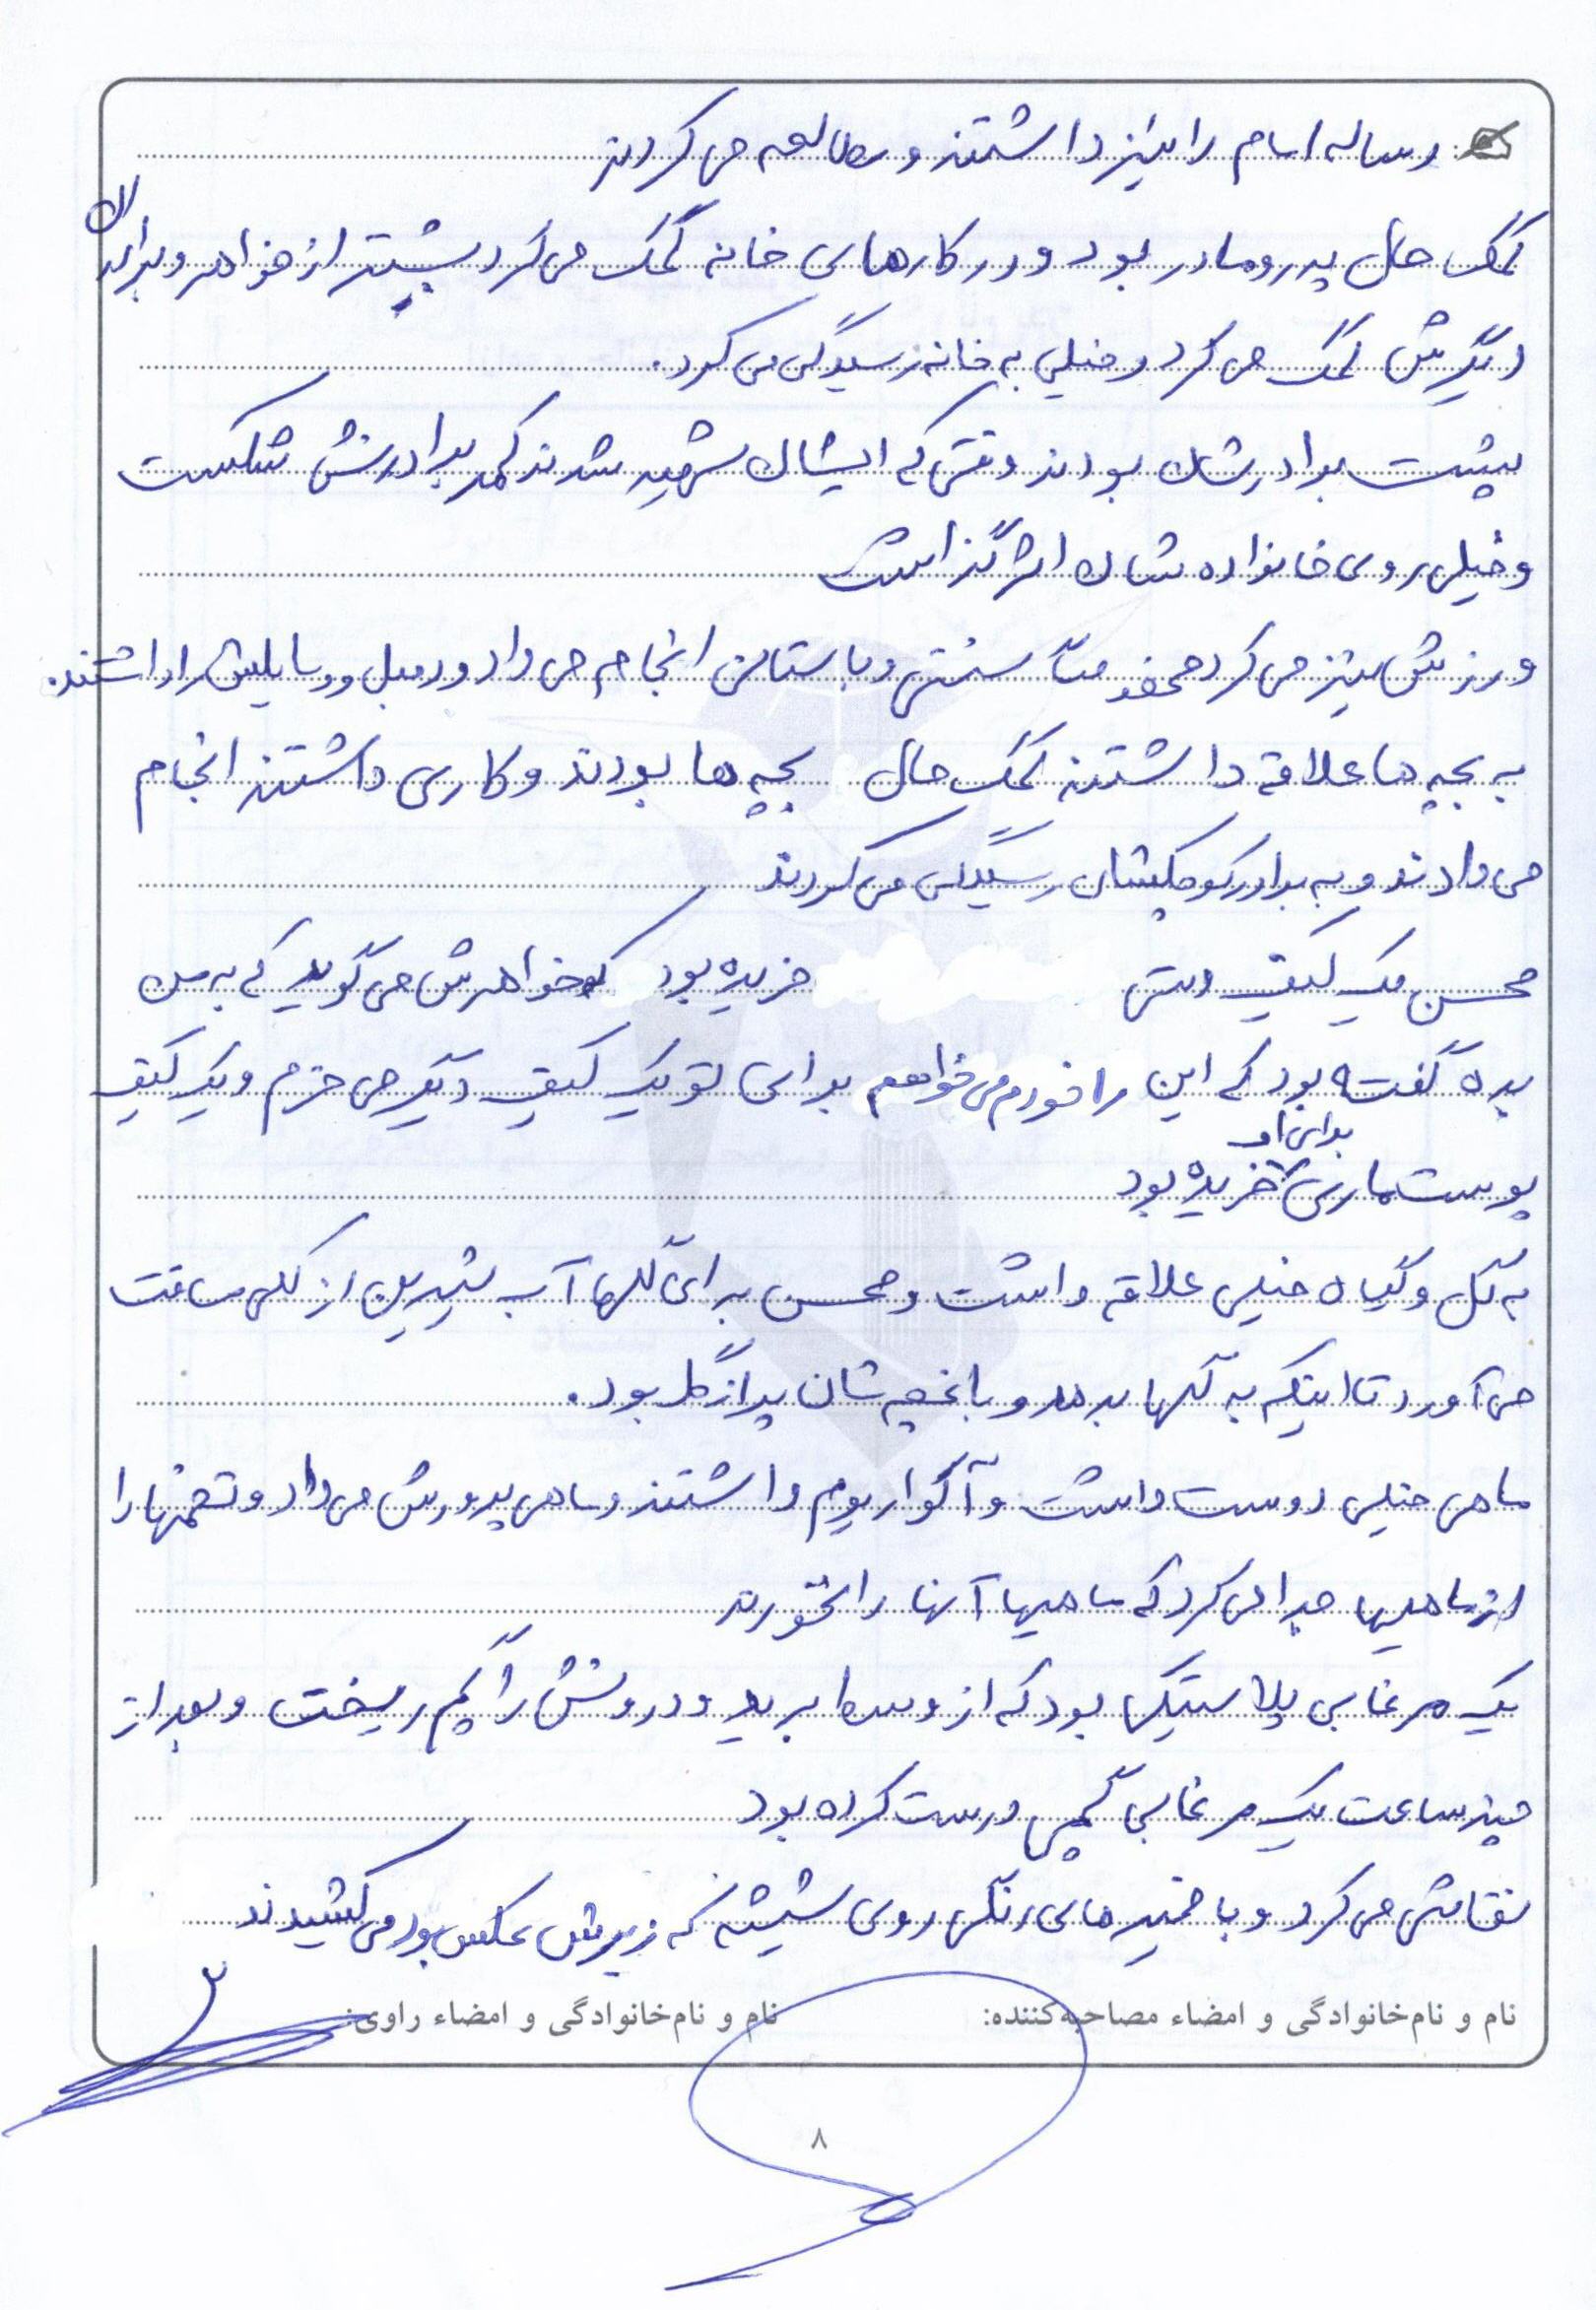 رساله امام را نیز داشتند و مطالعه می کردند
کمک حال پدر و مادر بود و در کارهای خانه کمک می کرد بیشتر از خواهر و برادران
دیگرش کمک می کرد و خیلی به خانه رسیدگی می کرد.
پشت برادرشان بودند وقتی که ایشان شهید شدند کمر برادرش شکست
و خیلی روی خانواده شان اثر گذاشت
ورزش نیز می کرد مخصوصاً سنتی و باستانی انجام می داد و دمبل و وسایلش را داشتند.
به بچه ها علاقه داشتند کمک حال بچه ها بودند و کاری داشتند انجام
می دادند و به برادر کوچکشان رسیدگی می کردند
محسن یک کیف دستی خریده بود که خواهرش می گوید که به من
بده گفته بود که این را خودم می خواهم برای تو یک کیف دیگر می خرم و یک کیف
برای او
پوست ماری خریده بود
به گل و گیاه خیلی علاقه داشت و محسن برای گلها آب شیرین از
می آورد تا اینکه به گلها بدهد و باغچه شان پر از گل بود.
ماهی خیلی دوست داشت و آکواریوم داشتند و ماهی پرورش می داد و تخمها را
از ماهیها جدا می کرد که ماهیها آنها را نخورند
یک مرغابی پلاستیکی بود که از وسط برید و درونش را گچ ریخت و بعد از
چند ساعت یک مرغابی گچی درست کرده بود
نقاشی می کرد و با خمیرهای رنگی روی شیشه که زیرش عکس بود می کشیدند
نام و نام‌خانوادگی و امضاء مصاحبه‌کننده: نام و نام‌خانوادگی و امضاء راوی:
۸